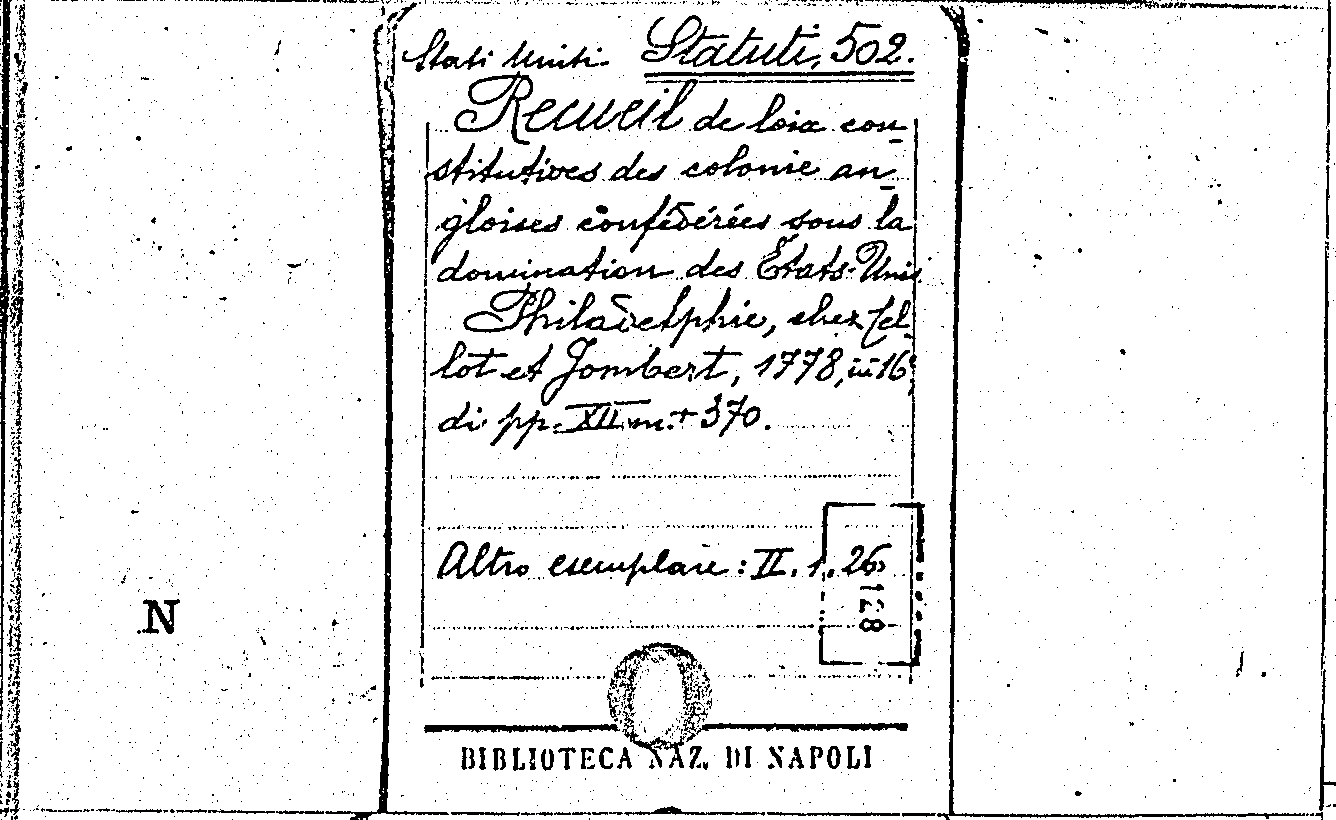 Stati Uniti Statuti, 502.
Recueil de loix con-
stitutives des colonie an-
gloises confédérées sous la
domination des États-Unis.
Philadelphie, chez Cel-
lot et Jombert, 1778, in 16°,
di pp. XII m. + 370.
Altro esemplare: II. 1. 26
128
N
BIBLIOTECA NAZ. DI NAPOLI